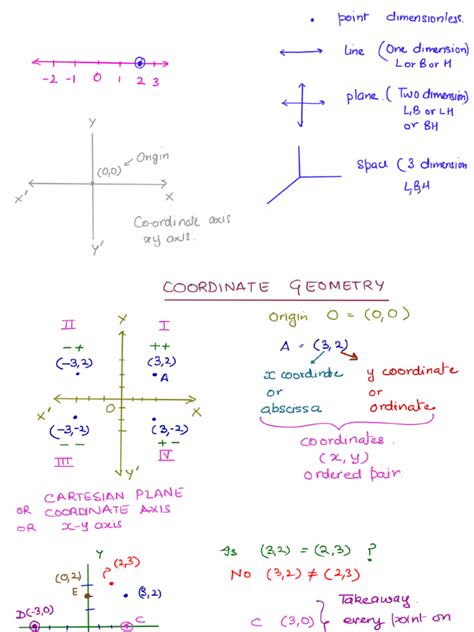 point dimensionless.
line (One dimension)
L or B or H
-2 -1 0 1 2 3
plane. (Two dimension)
L,B or LH
or BH
Y
(0,0) Origin
X' X
Y'
Space (3 dimension
L,B,H
Co-ordinate axis
xy axis.
COORDINATE GEOMETRY
Origin O = (0,0)
II Y I
- + + +
(-3,2) (3,2)
A
A = (3,2)
x coordinate y coordinate
or or
abscissa ordinate
X' O X
(-3,-2) (3,-2)
- - + -
III Y' IV
coordinates.
(x, y)
ordered pair
CARTESIAN PLANE
OR COORDINATE AXIS
OR x-y axis
Y
(0,2) ? (2,3)
E (3,2)
D(-3,0) C
Is (3,2) = (2,3) ?
No (3,2) ≠ (2,3)
Takeaway.
C (3,0) every point on